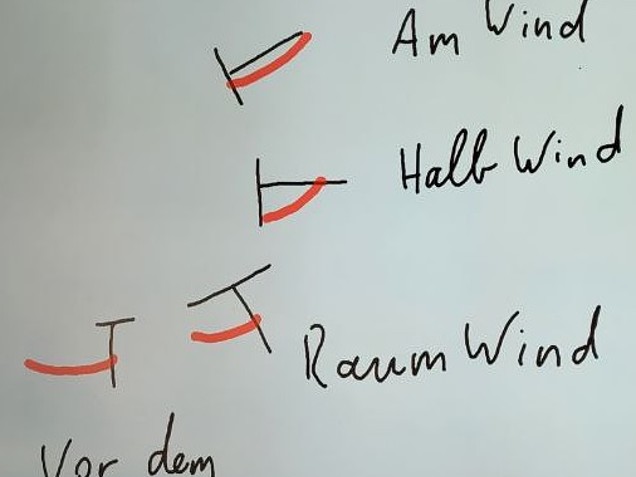 Am Wind
Halb Wind
Raum Wind
Vor dem